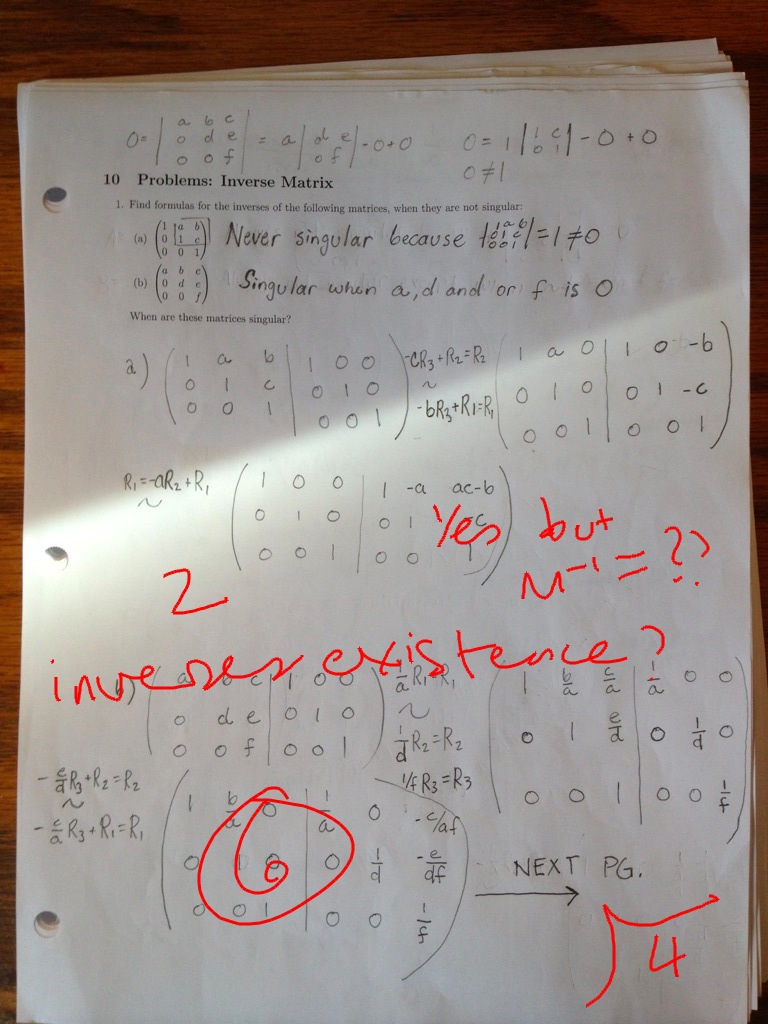 0 = | a b c ; 0 d e ; 0 0 f | = a | d e ; 0 f | - 0 + 0
0 = 1 | 1 c ; 0 1 | - 0 + 0
0 ≠ 1
10 Problems: Inverse Matrix
1. Find formulas for the inverses of the following matrices, when they are not singular:
(a) ( 1 a b ; 0 1 c ; 0 0 1 ) Never singular because | 1 a b ; 0 1 c ; 0 0 1 | = 1 ≠ 0
(b) ( a b c ; 0 d e ; 0 0 f ) Singular when a, d and or f is 0
When are these matrices singular?
a) ( 1 a b | 1 0 0 ; 0 1 c | 0 1 0 ; 0 0 1 | 0 0 1 )
-cR3 + R2 = R2
~
-bR3 + R1 = R1
( 1 a 0 | 1 0 -b ; 0 1 0 | 0 1 -c ; 0 0 1 | 0 0 1 )
R1 = -aR2 + R1
~
( 1 0 0 | 1 -a ac-b ; 0 1 0 | 0 1 -c ; 0 0 1 | 0 0 1 )
Yes but
M-1 = ??
2
inverses existence?
b) ( a b c | 1 0 0 ; 0 d e | 0 1 0 ; 0 0 f | 0 0 1 )
1/a R1 = R1
~
1/d R2 = R2
1/f R3 = R3
( 1 b/a c/a | 1/a 0 0 ; 0 1 e/d | 0 1/d 0 ; 0 0 1 | 0 0 1/f )
-e/d R3 + R2 = R2
~
-c/a R3 + R1 = R1
( 1 b/a 0 | 1/a 0 -c/af ; 0 1 0 | 0 1/d -e/df ; 0 0 1 | 0 0 1/f )
6
NEXT PG.
4